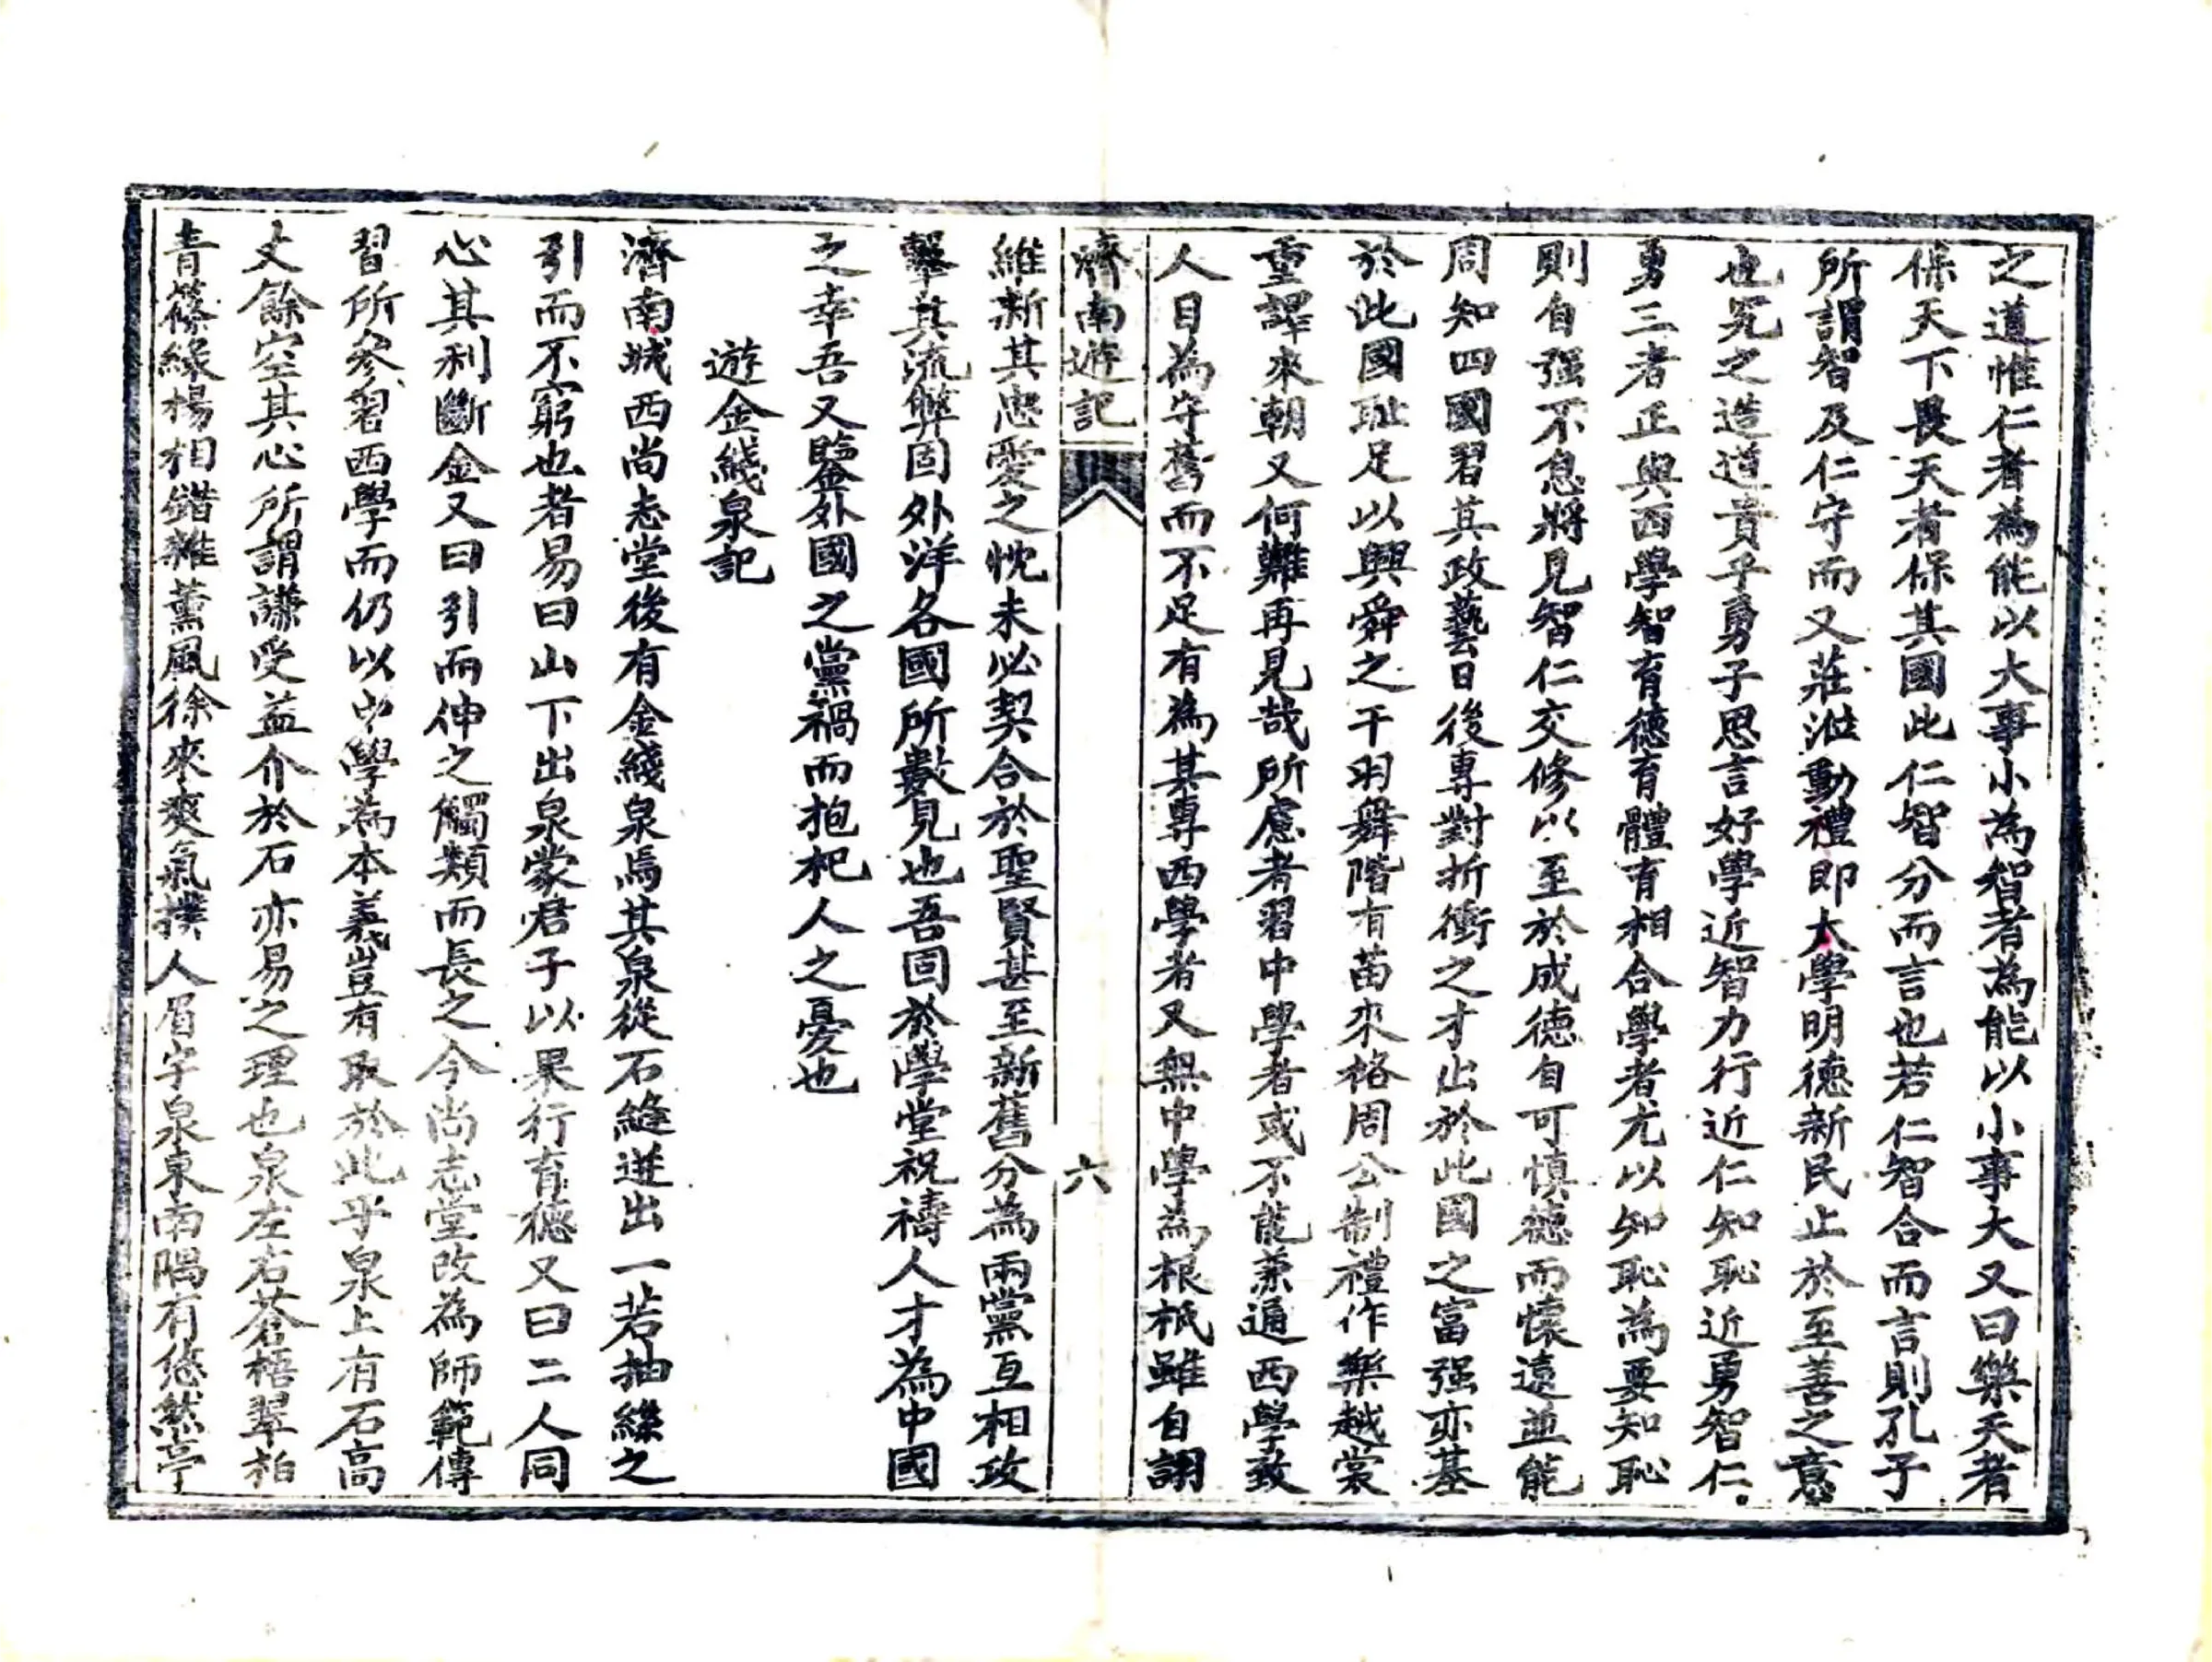 之道惟仁者為能以大事小為智者為能以小事大又曰樂天者
保天下畏天者保其國此仁智分而言也若仁智合而言則孔子
所謂智及仁守而又莊涖動禮即大學明德新民止於至善之意
也究之造道貴乎勇子思言好學近智力行近仁知恥近勇智仁
勇三者正與西學智育德育體育相合學者尤以知恥為要知恥
則自强不息將見智仁交修以至於成德自可慎德而懷遠並能
周知四國習其政藝日後專對折衝之才出於此國之富强亦基
於此國耻足以興舜之干羽舞階有苗來格周公制禮作樂越裳
重譯來朝又何難再見哉所慮者習中學者或不能兼通西學致
人目為守舊而不足有為某專西學者又無中學為根柢雖自詡
濟南遊記
六
維新其忠愛之忱未必契合於聖賢甚至新舊分為兩黨互相攻
擊其流弊固外洋各國所數見也吾固於學堂祝禱人才為中國
之幸吾又鑒外國之黨禍而抱杞人之憂也
遊金綫泉記
濟南城西尚志堂後有金綫泉焉其泉從石縫迸出一若抽絲之
引而不窮也者易曰山下出泉蒙君子以果行育德又曰二人同
心其利斷金又曰引而伸之觸類而長之今尚志堂改為師範傳
習所叅習西學而仍以中學為本義豈有取於此乎泉上有石高
丈餘空其心所謂謙受益介於石亦易之理也泉左右蒼梧翠柏
青篠綠楊相錯雜薰風徐來爽氣撲人眉宇泉東南隅有悠然亭